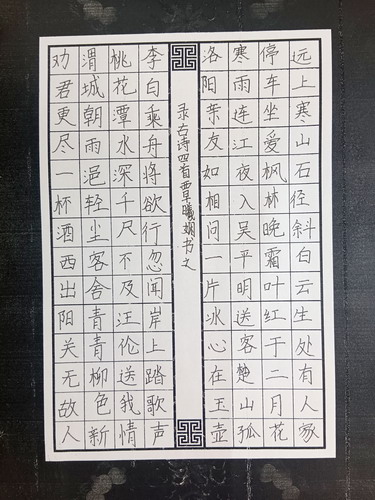 远上寒山石径斜白云生处有人家
停车坐爱枫林晚霜叶红于二月花
寒雨连江夜入吴平明送客楚山孤
洛阳亲友如相问一片冰心在玉壶
录古诗四首覃曦书之
李白乘舟将欲行忽闻岸上踏歌声
桃花潭水深千尺不及汪伦送我情
渭城朝雨浥轻尘客舍青青柳色新
劝君更尽一杯酒西出阳关无故人